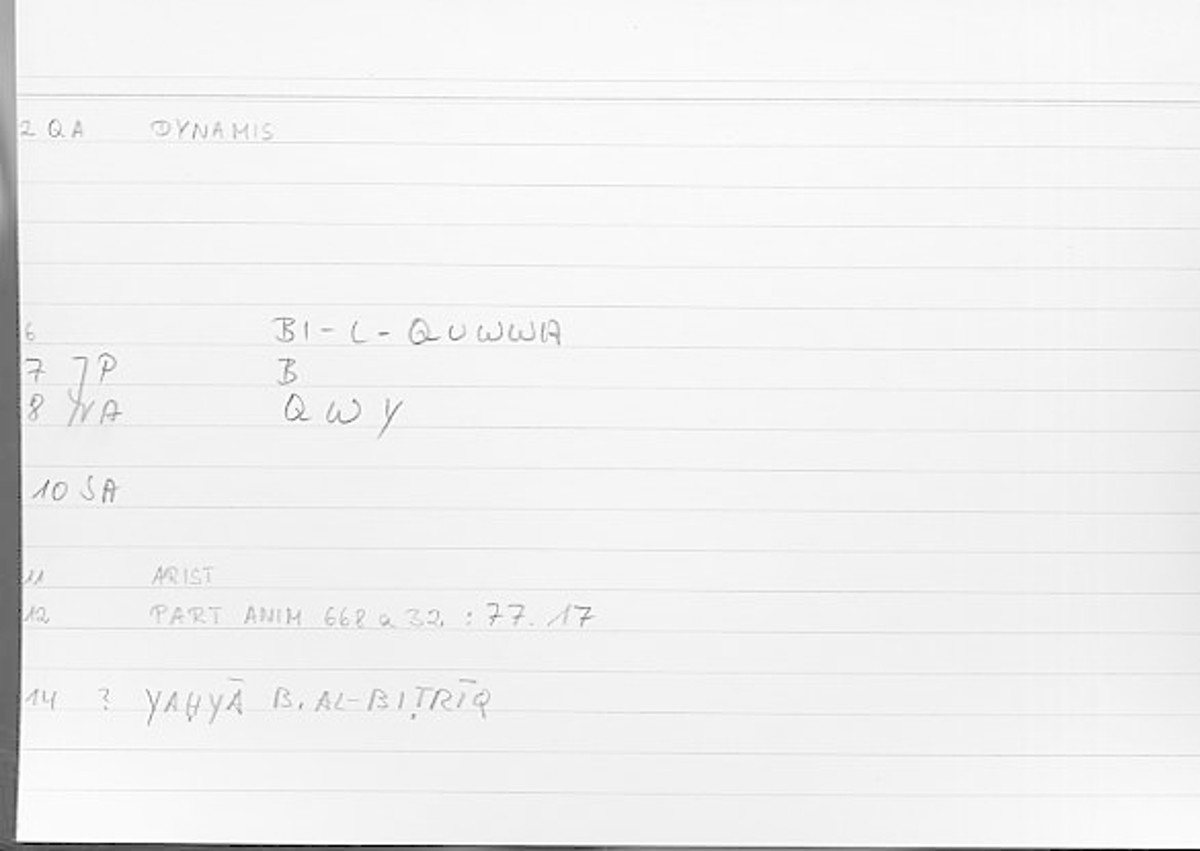 2 QA DYNAMIS
6 BI-L-QUWWA
7 JP B
8 NA QWY
10 SA
11 ARIST
12 PART ANIM 668 a 32 : 77.17
14 ? YAḤYĀ B. AL-BIṬRĪQ